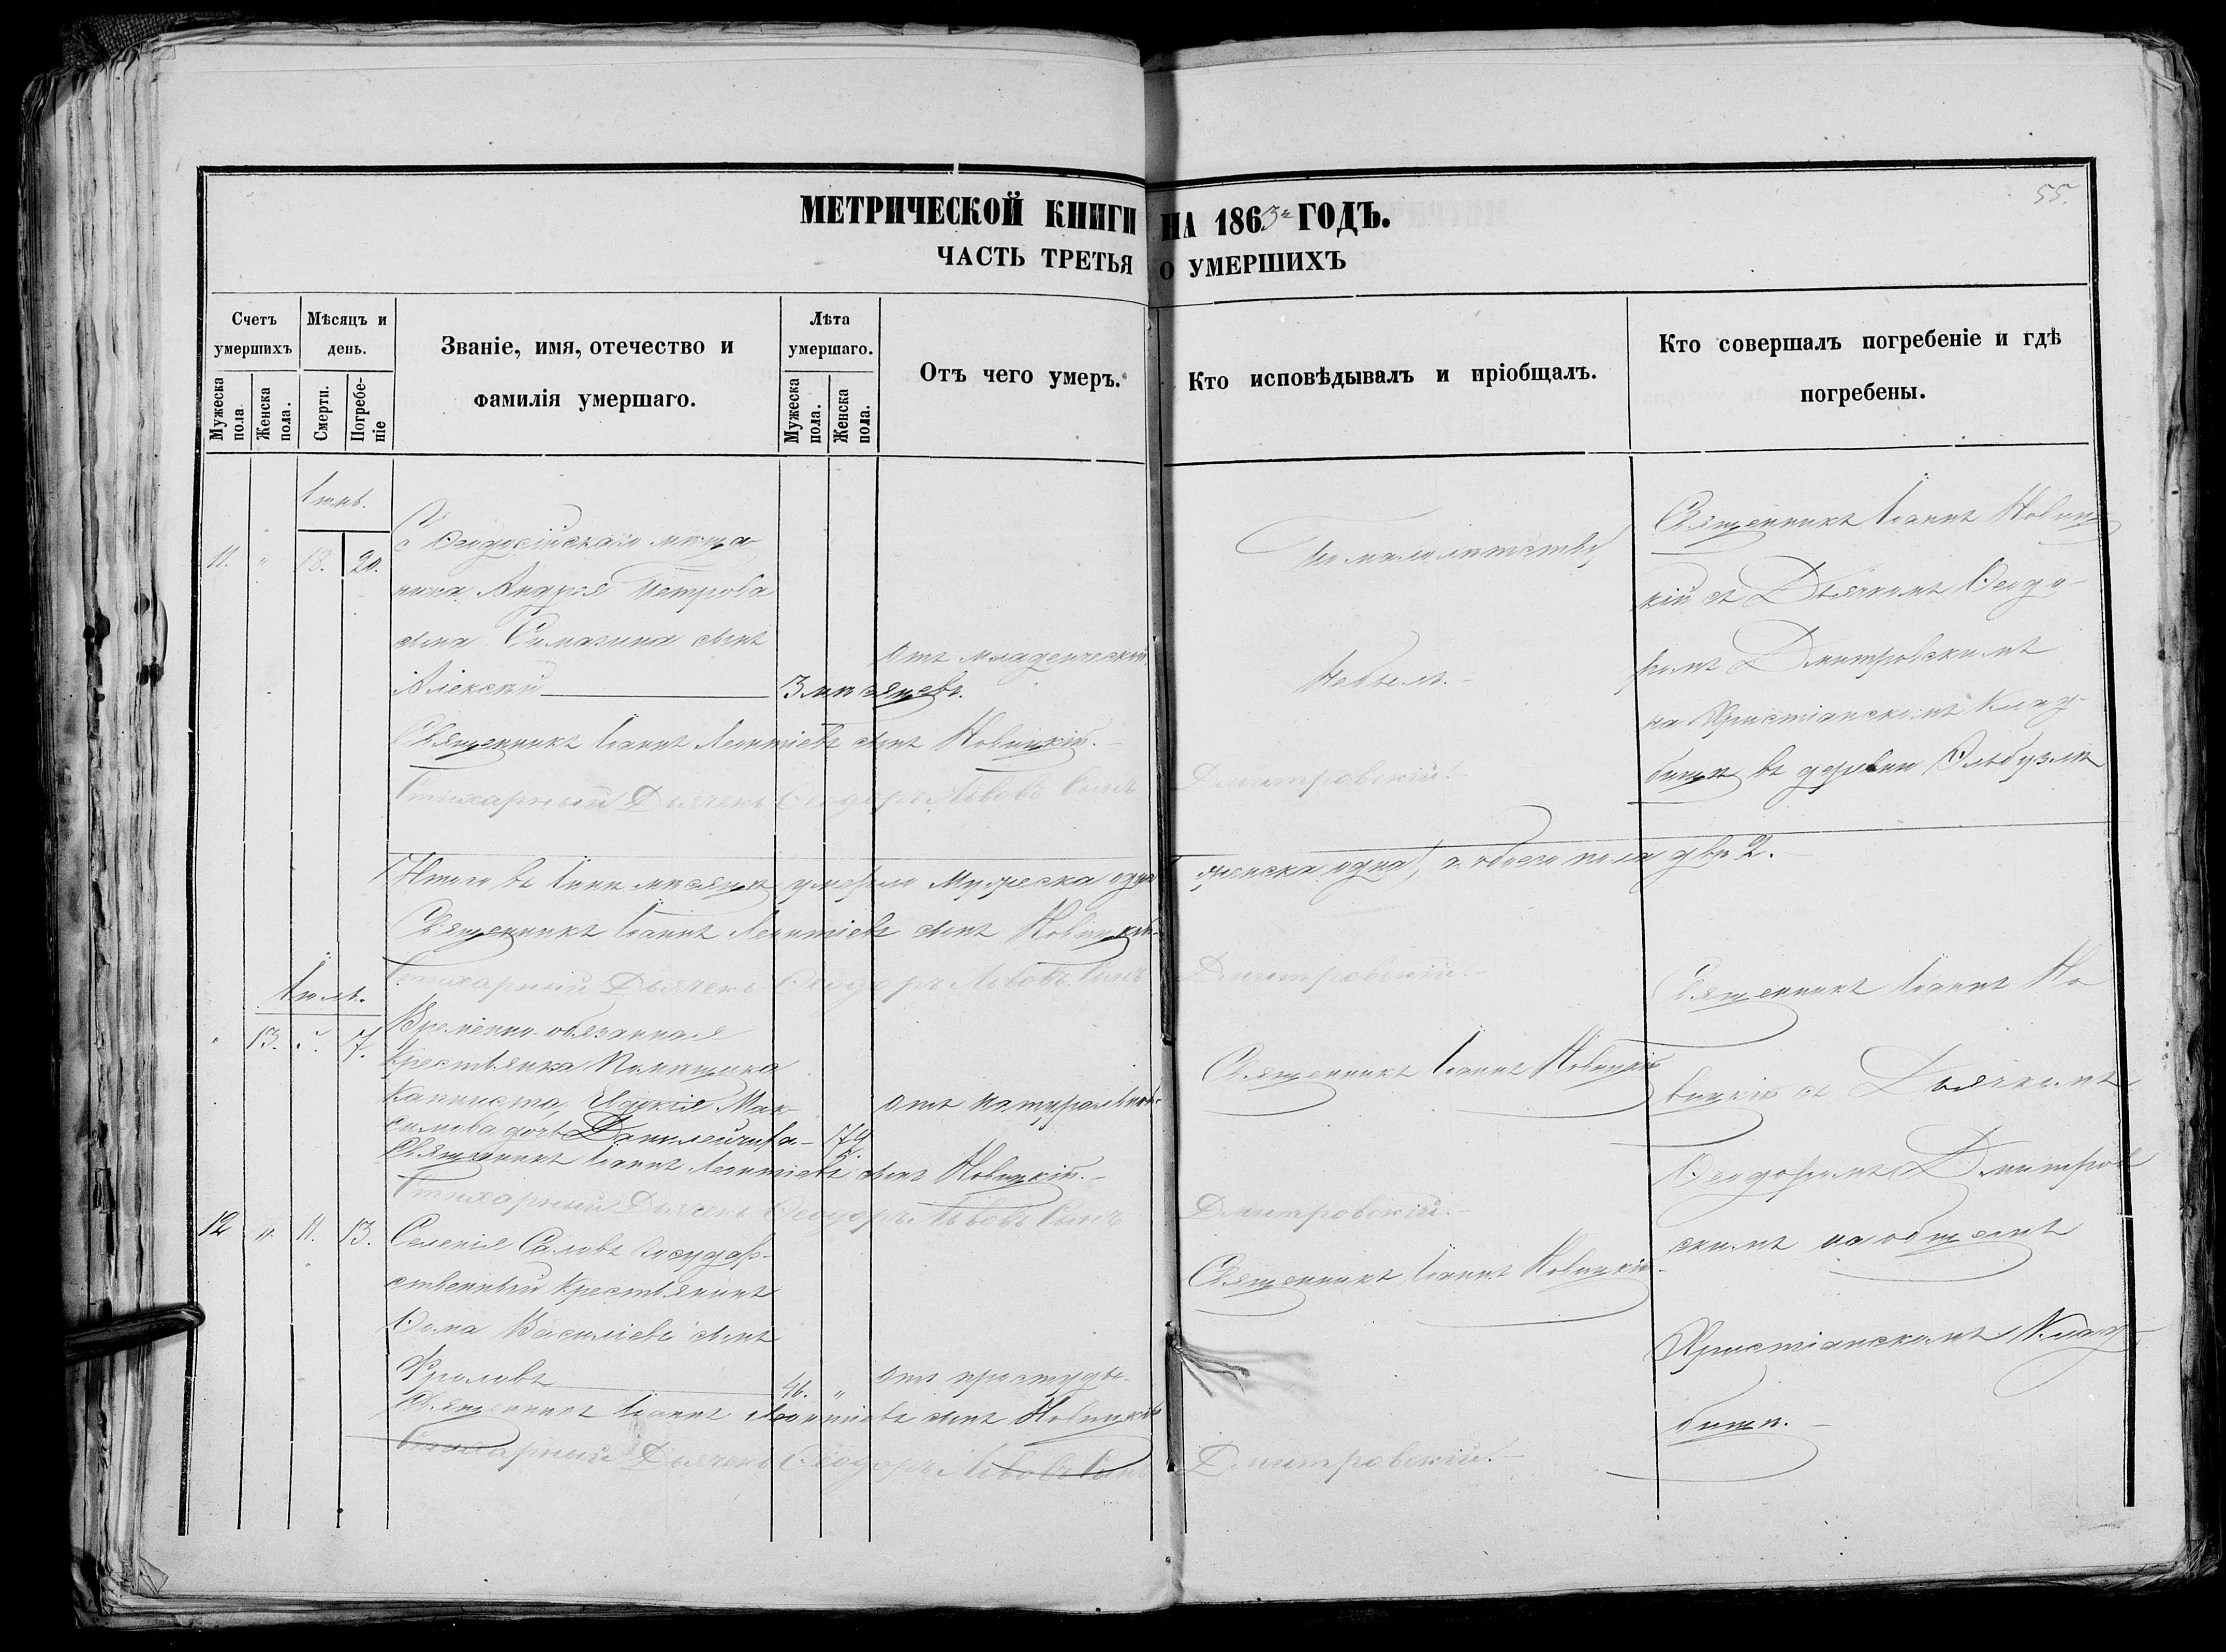 55.
МЕТРИЧЕСКОЙ КНИГИ НА 1863й ГОДЪ.
ЧАСТЬ ТРЕТЬЯ О УМЕРШИХЪ
Счетъ умершихъ
Мужеска пола.
Женска пола.
Мѣсяцъ и день.
Смерти.
Погребеніе
Званіе, имя, отечество и
фамилія умершаго.
Лѣта умершаго.
Мужеска пола.
Женска пола.
Отъ чего умеръ.
Кто исповѣдывалъ и пріобщалъ.
Кто совершалъ погребеніе и гдѣ
погребены.
Іюнь.
11. " 18. 20.
Ѳеодосійскаго мѣща-
нина Андрея Петрова
сына сынъ
Алексѣй
3 мѣсяцевъ.
отъ младенческой
По малолѣтству
небылъ.
Священникъ Іоаннъ Новиц-
кій съ Дьячкомъ Ѳеодо-
ромъ Дмитровскимъ
на Христіанскомъ Клад-
бищѣ въ деревни
Священникъ Іоаннъ Леонтіевъ сынъ Новицкій.
Стихарный Дьячекъ Ѳеодоръ Львовъ Сынъ Дмитровскій.
Итого въ Іюнѣ мѣсяцѣ умерло Мужеска одинъ женска одна, а обоего пола два 2.
Священникъ Іоаннъ Леонтіевъ сынъ Новицкій.
Стихарный Дьячекъ Ѳеодоръ Львовъ Сынъ Дмитровскій.
Іюль.
" 13. 5. 7.
Временно-обязанная
Крестьянка Помѣщика
Капниста, Евдокія Мак-
симова дочь
74.
отъ натуральной
Священникъ Іоаннъ Новицкій
Священникъ Іоаннъ Но
вицкій съ Дьячкомъ
Ѳеодоромъ Дмитров
скимъ на общемъ
Христіанскомъ Клад-
бищѣ.
Священникъ Іоаннъ Леонтіевъ сынъ Новицкій.
Стихарный Дьячекъ Ѳеодоръ Львовъ Сынъ Дмитровскій.
12 " 11. 13.
Селенія Саловъ Государ-
ственный Крестьянинъ
Ѳома Василіевъ сынъ
Фроловъ
46. "
отъ простуды.
Священникъ Іоаннъ Новицкій
Священникъ Іоаннъ Леонтіевъ сынъ Новицкій
Стихарный Дьячекъ Ѳеодоръ Львовъ Сынъ Дмитровскій.